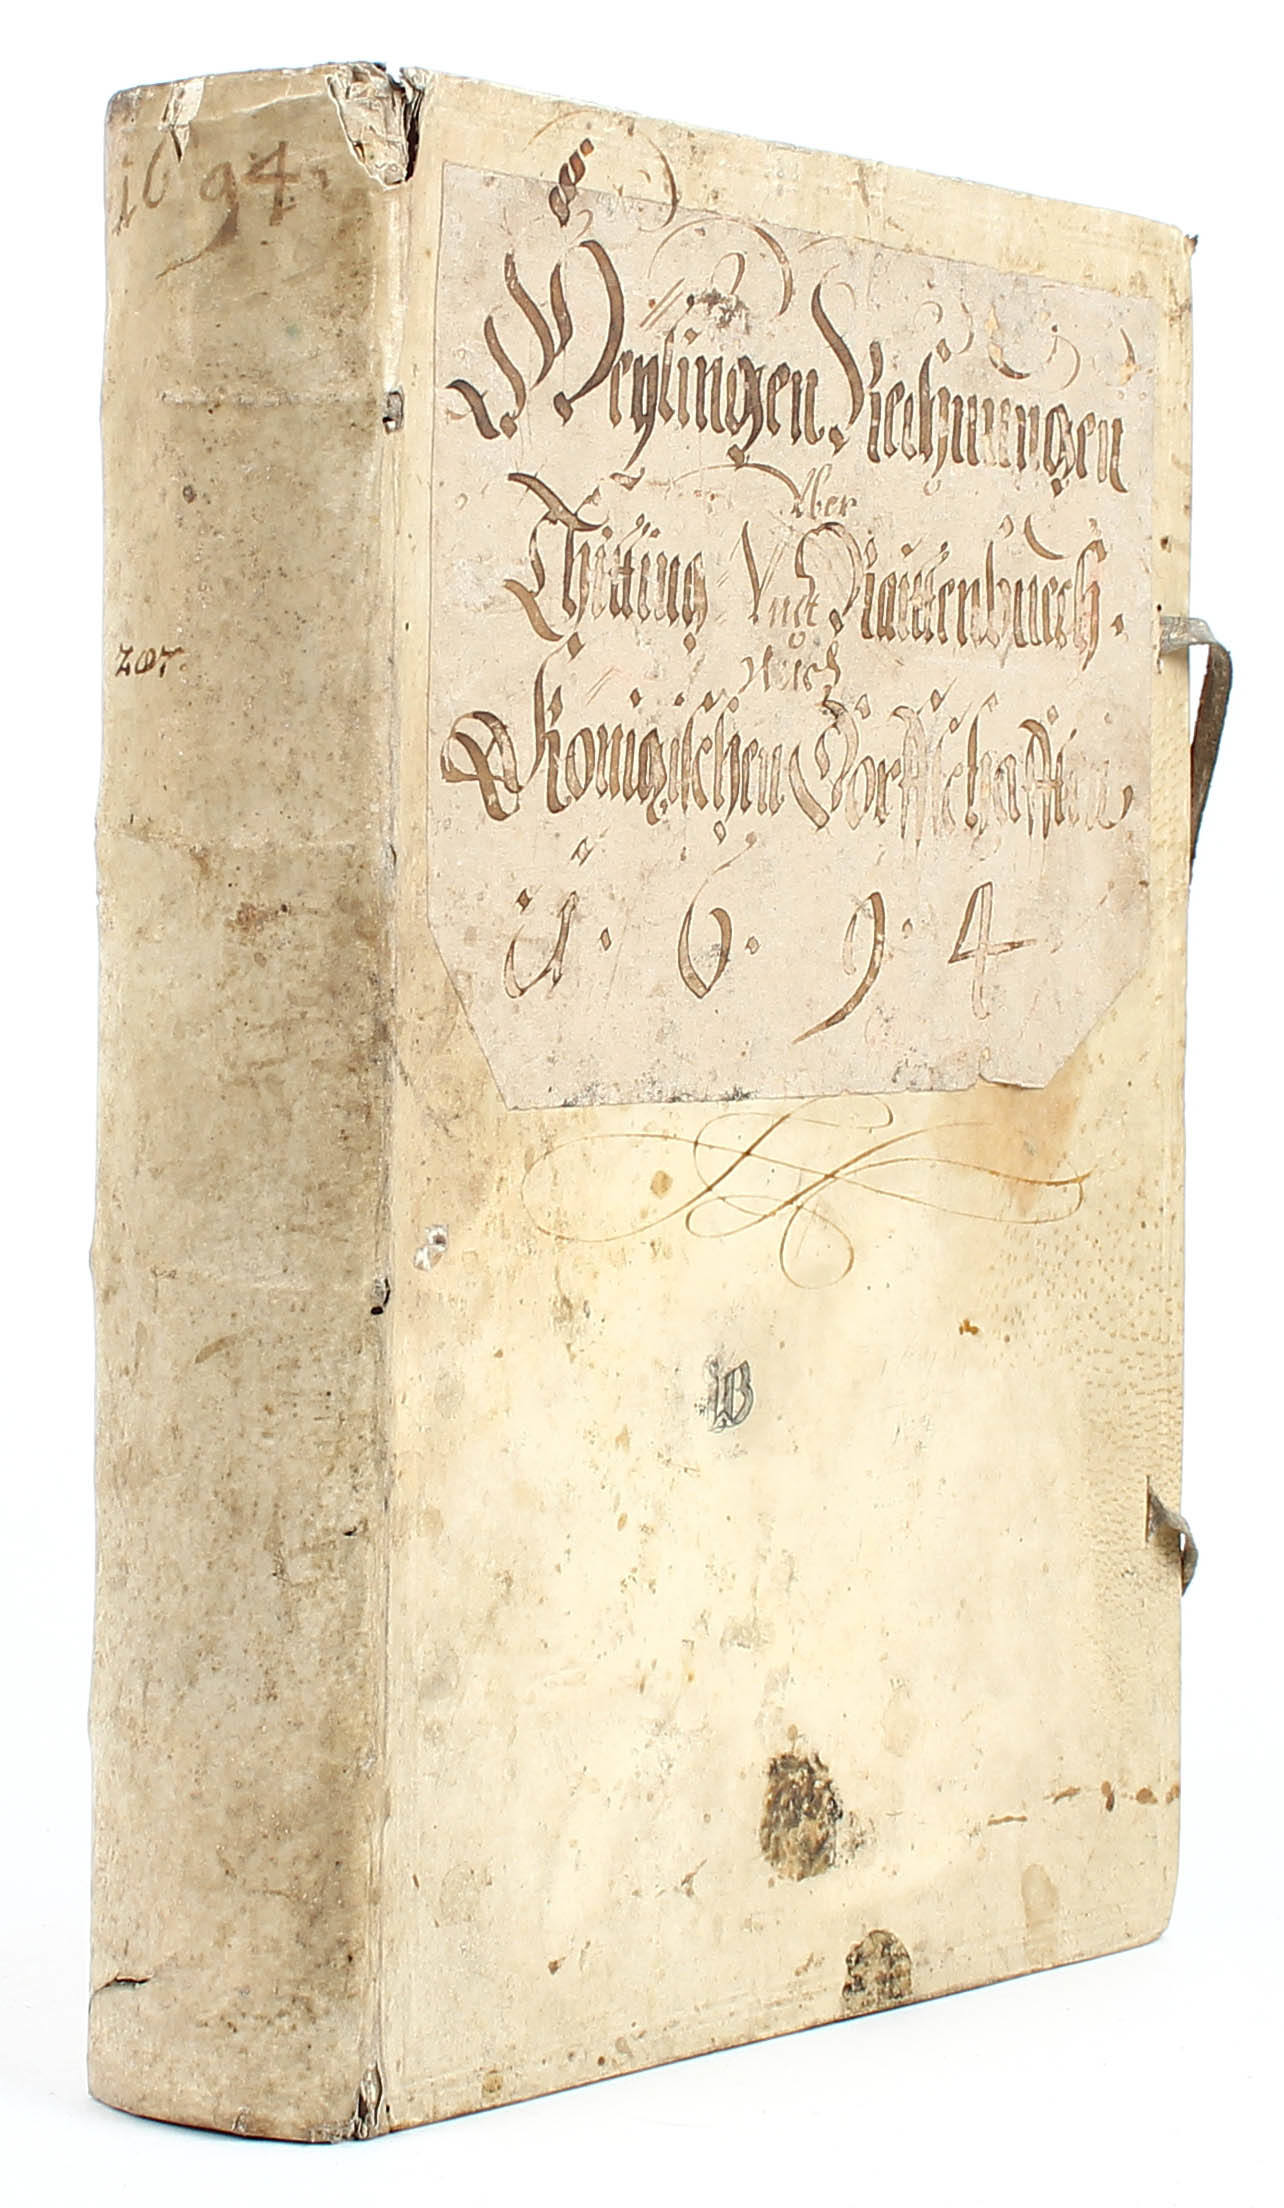 1694
207
Meylingen Riechnungen
Über
Thitting Vnd Raittenbuech.
Königischen Dorffschafften
1.6.9.4.
B